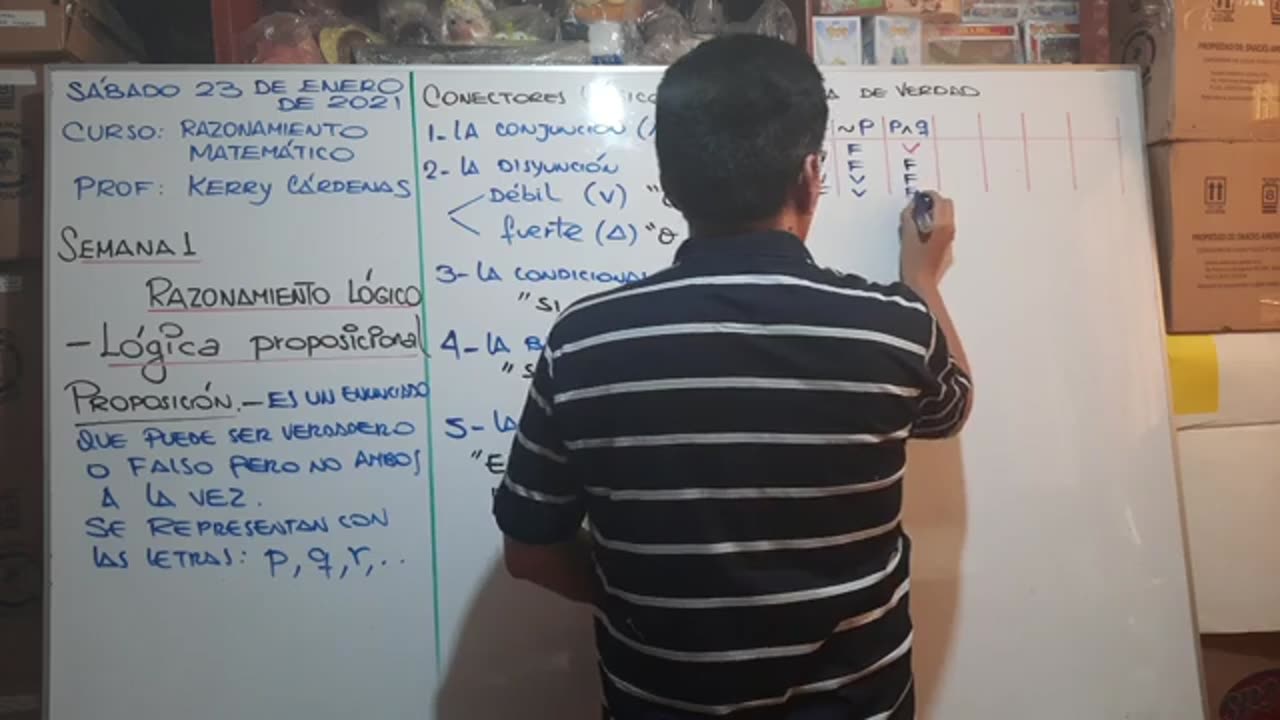 SÁBADO 23 DE ENERO
DE 2021
CURSO: RAZONAMIENTO
MATEMÁTICO
PROF: KERRY CÁRDENAS
SEMANA 1
RAZONAMIENTO LÓGICO
- Lógica proposicional
PROPOSICIÓN.- ES UN ENUNCIADO
QUE PUEDE SER VERDADERO
O FALSO PERO NO AMBOS
A LA VEZ.
SE REPRESENTAN CON
LAS LETRAS: p, q, r, ..
CONECTORES
1- LA CONJUNCIÓN (
2- LA DISYUNCIÓN
Débil (V) "
fuerte (Δ) "O
3- LA CONDICIONAL
"SI
4- LA
"S
5- LA
"E
DE VERDAD
~P P∧q
F V
F F
V F
V
PROPIEDAD DE SNACKS AMERICA
PROPIEDAD DE SNACKS AMERICA